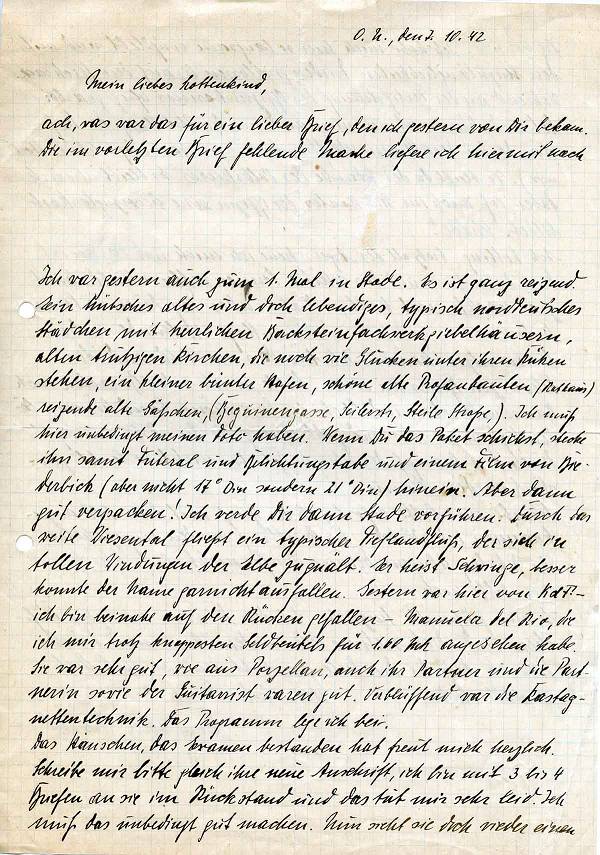 O. U., den 7. 10. 42
Mein liebes Lottenkind,
ach, was war das für ein lieber Brief, den ich gestern von Dir bekam.
Die im vorletzten Brief fehlende Marke liefere ich hiermit nach
Ich war gestern auch zum 1. Mal in Stade. Es ist ganz reizend.
Ein hübsches altes und doch lebendiges, typisch norddeutsches
Städchen mit herrlichen Backsteinfachwerkgiebelhäusern,
alten trutzigen Kirchen, die noch wie Glucken unter ihren Küken
stehen, ein kleiner bunter Hafen, schöne alte Profanbauten (Rathaus)
reizende alte Gäßchen, (Beguinengasse, Seilerstr, Steile Straße,). Ich muß
hier unbedingt meinen Foto haben. Wenn Du das Paket schickst, stecke
ihn samt Futeral und Belichtungstabe und einem Film von Bie-
derbick (aber nicht 17° Din sondern 21° Din) hinein. Aber dann
gut verpacken! Ich werde Dir dann Stade vorführen. Durch das
weite Wiesental fließt ein typischer Tieflandfluß, der sich in
tollen Windungen der Elbe zuquält. Er heist Schwinge, besser
konnte der Name garnicht ausfallen. Gestern war hier von KdF -
ich bin beinahe auf den Rücken gefallen - Manuela del Rio, die
ich mir trotz knappesten Geldbeutels für 1.00 Mk angesehen habe.
Sie war sehr gut, wie aus Porzellan, auch ihr Partner und die Part-
nerin sowie der Guitarrist waren gut. Verblüffend war die Kastag-
nettentechnik. Das Programm lege ich bei.
Das Hänschen, das Examen bestanden hat freut mich herzlich.
Schreibe mir bitte gleich ihre neue Anschrift, ich bin mit 3 bis 4
Briefen an sie im Rückstand und das tut mir sehr leid. Ich
muß das unbedingt gut machen. Nun sieht sie doch wieder einen